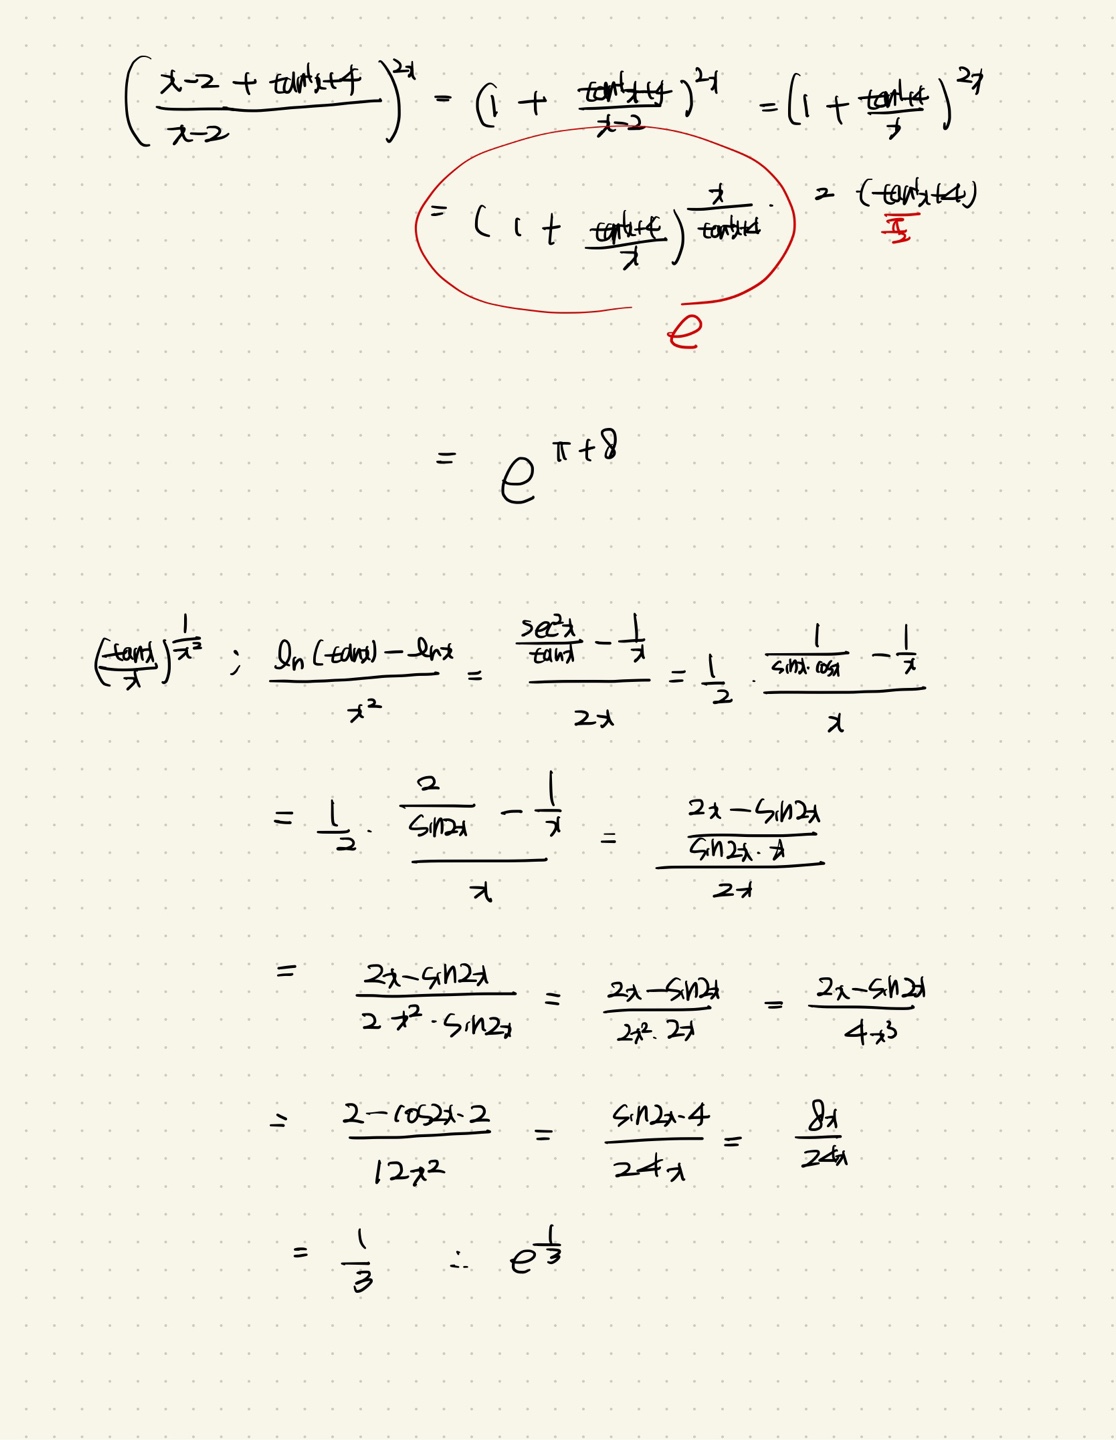 (\frac{x-2+\tan^{-1}x+4}{x-2})^{2x} = (1+\frac{\tan^{-1}x+4}{x-2})^{2x} = (1+\frac{\tan^{-1}x+4}{x})^{2x}
= (1+\frac{\tan^{-1}x+4}{x})^{\frac{x}{\tan^{-1}x+4}\cdot 2(\tan^{-1}x+4)}
\frac{π}{2}
e
= e^{π+8}
(\frac{\tan x}{x})^{\frac{1}{x^2}} ; \frac{\ln(\tan x)-\ln x}{x^2} = \frac{\frac{\sec^2 x}{\tan x}-\frac{1}{x}}{2x} = \frac{1}{2}\cdot\frac{\frac{1}{\sin x\cdot\cos x}-\frac{1}{x}}{x}
= \frac{1}{2}\cdot\frac{\frac{2}{\sin 2x}-\frac{1}{x}}{x} = \frac{\frac{2x-\sin 2x}{\sin 2x\cdot x}}{2x}
= \frac{2x-\sin 2x}{2x^2\cdot\sin 2x} = \frac{2x-\sin 2x}{2x^2\cdot 2x} = \frac{2x-\sin 2x}{4x^3}
= \frac{2-\cos 2x\cdot 2}{12x^2} = \frac{\sin 2x\cdot 4}{24x} = \frac{8x}{24x}
= \frac{1}{3} ∴ e^{\frac{1}{3}}